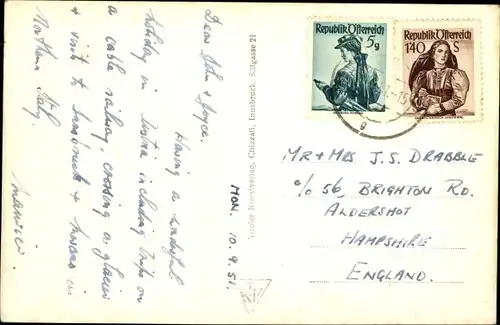 Dear John & Joyce.
Having a wonderful
holiday in Austria including trips on
a cable railway, crossing a glacier
& visits to Innsbruck & towns in
Northern Italy.
Maurice.
MON. 10.9.51.
Tiroler Kunstverlag, Chizzali, Innsbruck, Sillgasse 21
Republik Österreich
5g
Republik Österreich
1'40 S
MR + MRS J. S. DRABBLE
c/o 56, BRIGHTON RD.
ALDERSHOT
HAMPSHIRE
ENGLAND.